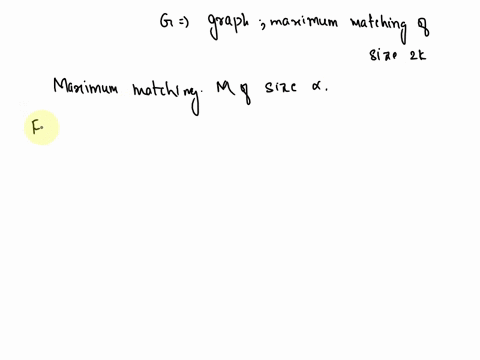 G ⇒ graph ; maximum matching of
size 2k
Maximum matching. M of size α.
F.